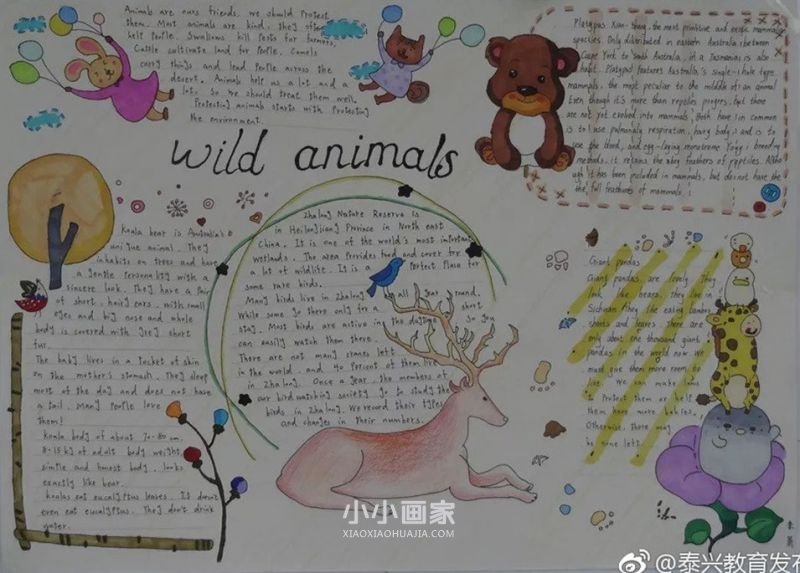 Animals are our friends, we should Protect
them. Most animals are kind, they often
help People. Swallows kill pests for farmers,
Cattle cultivate land for People. Camels
carry things and lead People across the
desert. Animals help us a lot and a
lot. So we should treat them well.
Protecting animals starts with Protecting
the environment.
wild animals
species. Only distributed in eastern Australia (between
Cape York to South Australia, in a Tasmanias is also
mammals, the most peculiar to the middle of an animal
are not yet evolved into mammals. Both have in common
is to use pulmonary respiration, hairy body
methods. it retains the many features of reptiles. Altho
ugh it has been included in mammals, but do not have the
the full features of mammals!
Koala bear is Australia's
unique animal. They
inhabits on trees and have
a gentle Personality with a
sincere look. They have a pair
of short, hairy ears, with small
eyes and big nose and whole
body is covered with grey short
fur.
The baby lives in a pocket of skin
on the mother's stomach. They sleep
most of the day and does not have
a tail. Many People love
them!
Koala body of about 70-80 cm,
8-15 kg of adult body weight,
simple and honest body, looks
exactly like bear.
Koalas eat eucalyptus leaves. It doesn't
even eat eucalyptus. They don't drink
water.
Zhalong Nature Reserve is
in Heilongjiang Province in North east
China. It is one of the world's most important
wetlands. The area Provides food and cover for
a lot of wildlife. It is a Perfect Place for
some rare birds.
Many birds live in Zhalong all year round,
While some go there only for a short
stay. Most birds are active in the daytime so you
can easily watch them there.
There are not many cranes left
in the world, and 40 percent of them live
in Zhalong. Once a year, the members of
our bird watching society go to study the
birds in Zhalong. We record their types
and changes in their numbers.
Giant Pandas
Giant Pandas are lovely. They
look like bears. they live in
Sichuan. they like eating bamboo
shoots and leaves. there are
only about one thousand giant
Pandas in the world now. we
must give them more room to
live. we can make laws
to Protect them or help
them have more babies.
Otherwise, there may
be none left.
小小画家
XIAOXIAOHUAJIA.COM
@泰兴教育发布